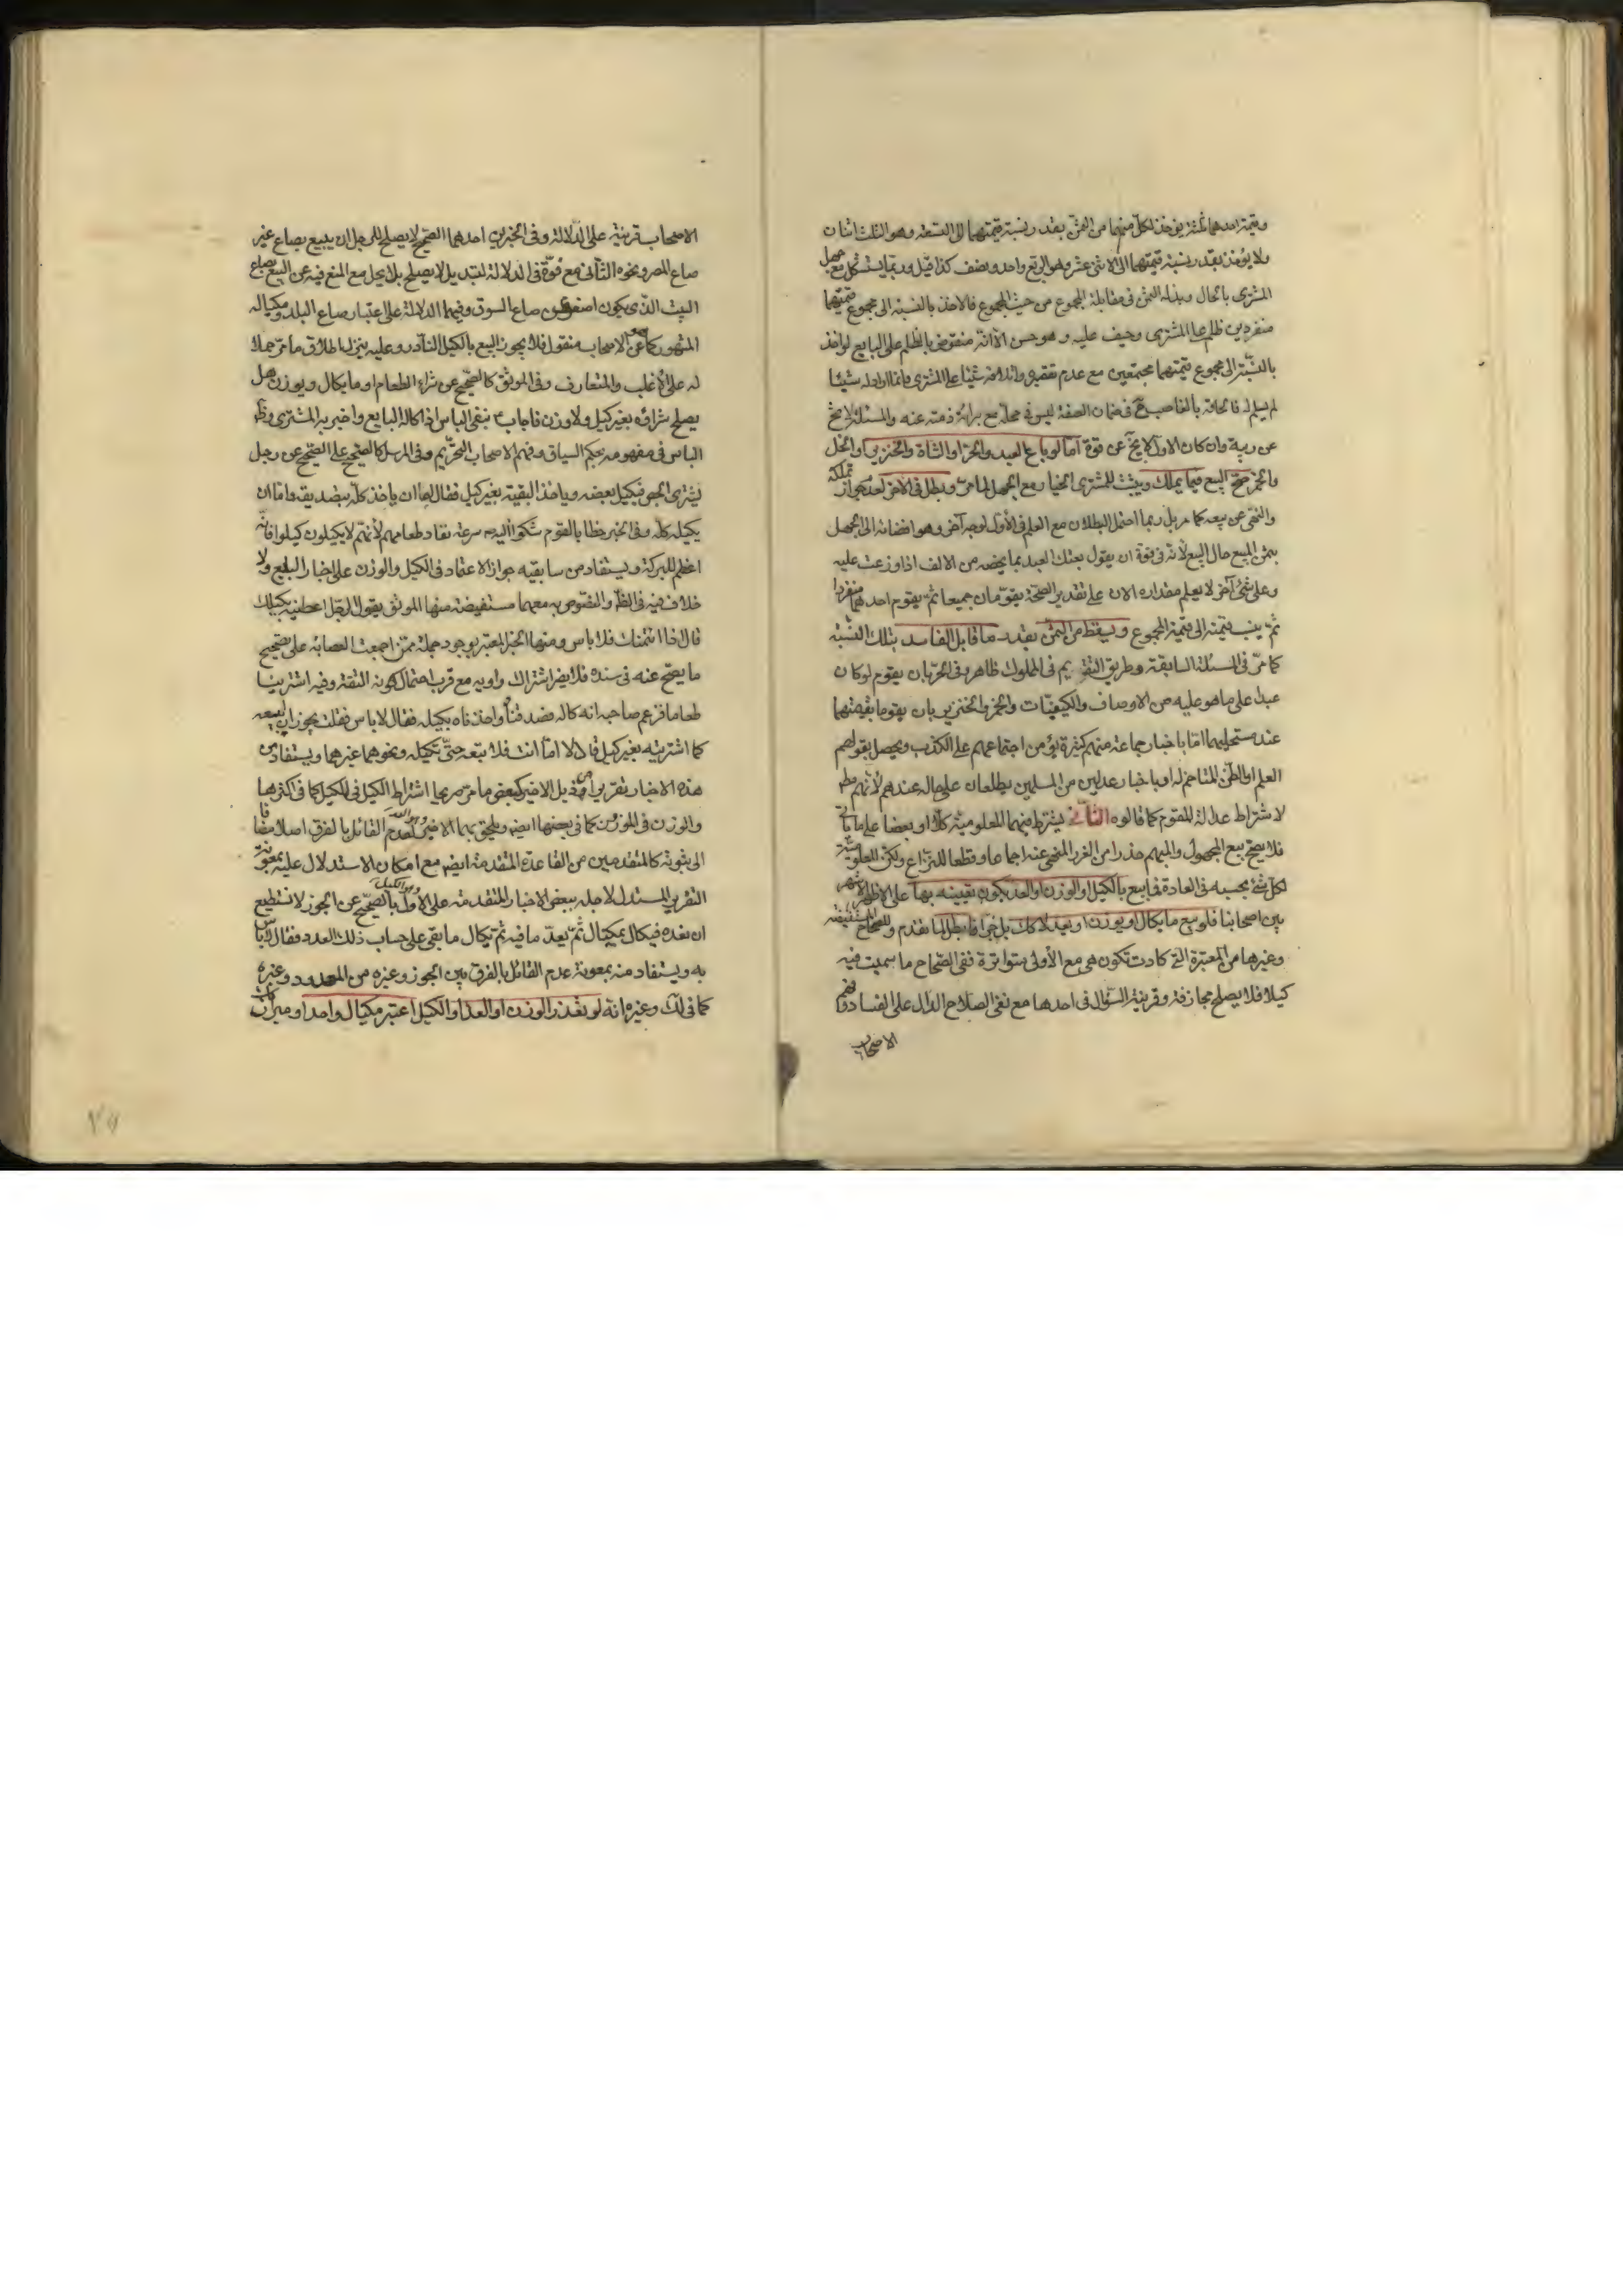 وقيمة احدهما ثلثة يؤخذ لكل منهما من الثمن بقدر نسبة قيمتهما الى التسعة وهو الثلث اثنان
ولا يؤخذ بقدر نسبة قيمتهما الى الاثنى عشر وهو الربع واحد ونصف كذا قيل وربما يستشكل مع جهل
المشترى بالحال وبذله الثمن فى مقابلة المجموع من حيث المجموع فالاخذ بالنسبة الى مجموع قيمتهما
منفردين ظلم على المشترى وحيف عليه وهو حسن الا انه منقوض بالظلم على البايع لو اخذ
بالنسبة الى مجموع قيمتهما مجتمعين مع عدم تقصيره وانه لم شيئا على المشترى وانما اراد له شيئا
لم يسلم له فالحاقه بالغاصب فى ضمان الصفة ليس فى محله مع برائة ذمته عنه والمسئلة لا يخ
عن ريبة وان كان الاول لا يخ عن قوة امّا لو باع العبد والحرّ او الشاة والخنزير او الخل
والخمر صحّ البيع فيما يملك ويثبت للمشترى الخيار مع الجهل لما مرّ ويبطل فى الاخر لعدم جواز تملكه
والنهى عن بيعه كما مر بل ربما احتمل البطلان مع العلم فى الاول لوجه آخر وهو افضائه الى الجهل
بثمن المبيع حال البيع لانه فى قوة ان يقول بعتك العبد بما يخصه من الالف اذا وزعت عليه
وعلى شئ آخر لا يعلم مقداره الان على تقدير الصحّة يقوّمان جميعا ثم يقوم احدهما منفردا
ثم ينسب قيمته الى قيمة المجموع ويسقط من الثمن بقدر ما قابل الفاسد بتلك النسبة
كما مرّ فى المسئلة السابقة وطريق التقويم فى المملوك ظاهر وفى الحرّ بان يقوم لو كان
عبدا على ما هو عليه من الاوصاف والكيفيّات والخمر والخنزير بان يقوما بقيمتهما
عند مستحليهما امّا باخبار جماعة منهم كثيرة يؤمن اجتماعهم على الكذب ويحصل بقولهم
العلم او الظن المتاخم له او باخبار عدلين من المسلمين يطلعان على حاله عندهم لا منهم مط
لاشتراط عدالة المقوم كما قالوه الثانى يشترط فيهما المعلوميّة كلّا او بعضا على ما ياتى
فلا يصح بيع المجهول والمبهم حذرا من الغرر المنهى عنه اجماعا وقطعا للنزاع ولكن المعلوميّة
لكل شئ بحسبه فى العادة فما يبيع بالكيل او الوزن او العد يكون تعيينه بها على الاظهر الاشهر
بين اصحابنا فلو بيع ما يكال او يوزن او يعد لا كك بل جزافا بطل لما تقدم وللصحاح المستفيضة
وغيرها من المعتبرة التى كادت تكون هى مع الاولى متواترة ففى الصّحاح ما سميت فيه
كيلا فلا يصلح مجازفة وقرينة السؤال فى احدها مع نفى الصلاح الدال على الفساد وفهم
الاصحاب
الاصحاب قرينة على الدلالة وفى الخبرين احدهما الصحيح لا يصلح للرجل ان يبيع بصاع غير
صاع المصر ونحوه الثانى مع قوّة فى الدلالة لتبديل لا يصلح بلا يحل مع المنع فيه عن البيع بصاع
البيت الذى يكون اصغر من صاع السوق وفيهما الدلالة على اعتبار صاع البلد ومكياله
المشهور كما عن الاصحاب منقول فلا يجوز البيع بالكيل النادر وعليه ينزل اطلاق ما مرّ حملا
له على الاغلب والمتعارف وفى الموثق كالصّحيح عن شراء الطعام او ما يكال ويوزن هل
يصلح شراؤه بغير كيل ولا وزن فاجاب ع بنفى الباس اذا كاله البايع واخبر به المشترى وظ
الباس فى مفهومه بحكم السياق وفهم الاصحاب التحريم وفى المرسل كالصّحيح على الصّحيح عن رجل
يشترى الجص فيكيل بعضه وياخذ البقية بغير كيل فقال امّا ان ياخذ كلّه بتصديقه وامّا ان
يكيله كلّه وفى الخبر خطابا لقوم شكوا اليه سرعة نفاد طعامهم لانهم لا يكيلون كيلوا فانّه
اعظم للبركة ويستفاد من سابقيه جواز الاعتماد فى الكيل والوزن على اخبار البايع ولا
خلاف فيه فى الظ والنصّوص به معهما مستفيضة منها الموثق يقول الرجل اعطنيه بكيلك
قال اذا ائتمنك فلا باس ومنها الخبر المعتبر بوجود جملة ممّن اجمعت العصابة على تصحيح
ما يصحّ عنه فى سنده فلا يضر اشتراك راويه مع قرب احتمال كونه الثقة وفيه اشترينا
طعاما فزعم صاحبه انه كاله فصدقناه واخذناه بكيله فقال لا باس فقلت يجوز ان ابيعه
كما اشتريته بغير كيل قال لا امّا انت فلا تبعه حتى تكيله ونحوهما غيرهما ويستفاد من
هذه الاخبار تقريرا وفى ذيل الاخير كبعض ما مرّ صريحا اشتراط الكيل فى المكيل كما فى اكثرها
والوزن فى الموزون كما فى بعضها ايضا ويلحق بهما الاخير لعدم القائل بالفرق اصلا مضافا
الى ثبوته كالمتقدمين من القاعدة المتقدمة ايضم مع امكان الاستدلال عليه بمعونة
التقرير المستدل لاجله ببعض الاخبار المتقدمة على الاول بالصّحيح عن الجوز لا نستطيع
ان نعدّه فيكال بمكيال ثم يعدّ ما فيه ثم يكال ما بقى على حساب ذلك العدد فقال لا باس
به ويستفاد منه بمعونة عدم القائل بالفرق بين الجوز وغيره من المعدود وغيره
كما فى لك وغيره انه لو تعذر الوزن او العدّ او الكيل اعتبر مكيال واحد او ميزان